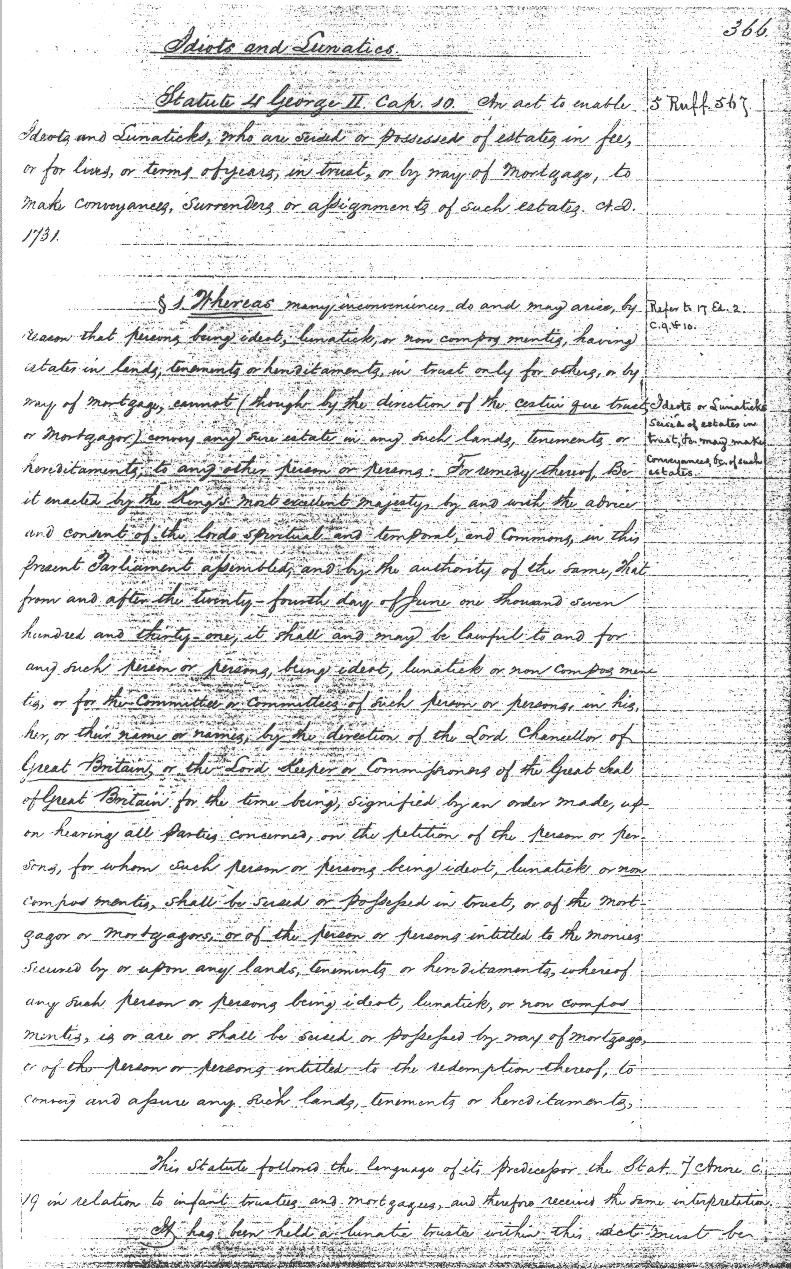 366.
Idiots and Lunatics.
Statute 4 George II. Cap. 10. An act to enable
5 Ruff. 567
Ideots and Lunaticks, who are seised or possessed of estates in fee,
or for lives, or terms of years, in trust, or by way of Mortgage, to
make conveyances, surrenders or assignments of such estates. A.D.
1731.
§ 1. Whereas many inconveniences do and may arise, by
Refer to 17 Ed. 2.
C. 9. & 10.
reason that persons being ideot, lunatick, or non compos mentis, having
estates in lands, tenements or hereditaments, in trust only for others, or by
way of mortgage, cannot (though by the direction of the cestui que trust,
Idiots or Lunaticks
seised of estates in
trust, &c. may make
conveyances, &c. of such
estates.
or Mortgagor) convey any sure estate in any such lands, tenements or
hereditaments, to any other person or persons: For remedy thereof, Be
it enacted by the King's most excellent majesty, by and with the advice
and consent of the lords spiritual and temporal, and Commons, in this
present Parliament assembled, and by the authority of the same, That
from and after the twenty-fourth day of June one thousand seven
hundred and thirty-one, it shall and may be lawful to and for
any such person or persons, being ideot, lunatick or non compos men-
tis, or for the Committee or Committees of such person or persons, in his,
her, or their name or names, by the direction of the Lord Chancellor of
Great Britain, or the Lord Keeper or Commissioners of the Great Seal
of Great Britain for the time being, signified by an order made, up-
on hearing all Parties concerned, on the petition of the person or per-
sons, for whom such person or persons being ideot, lunatick or non
compos mentis, shall be seised or possessed in trust, or of the mort-
gagor or Mortgagors, or of the person or persons intitled to the monies
secured by or upon any lands, tenements or hereditaments, whereof
any such person or persons being ideot, lunatick, or non compos
mentis, is or are or shall be seised or possessed by way of mortgage,
or of the person or persons intitled to the redemption thereof, to
convey and assure any such lands, tenements or hereditaments,
This Statute followed the language of its predecessor the Stat. 7 Anne c.
19 in relation to infant trustees and mortgagees, and therefore received the same interpretation.
It has been held a lunatic trustee within this act must be